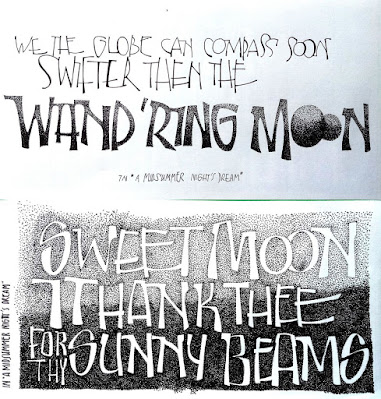 WE THE GLOBE CAN COMPASS SOON
SWIFTER THEN THE
WAND'RING MOON
IN "A MIDSUMMER NIGHT'S DREAM"
SWEET MOON
I THANK THEE
FOR THY SUNNY BEAMS
IN "A MIDSUMMER NIGHT'S DREAM"